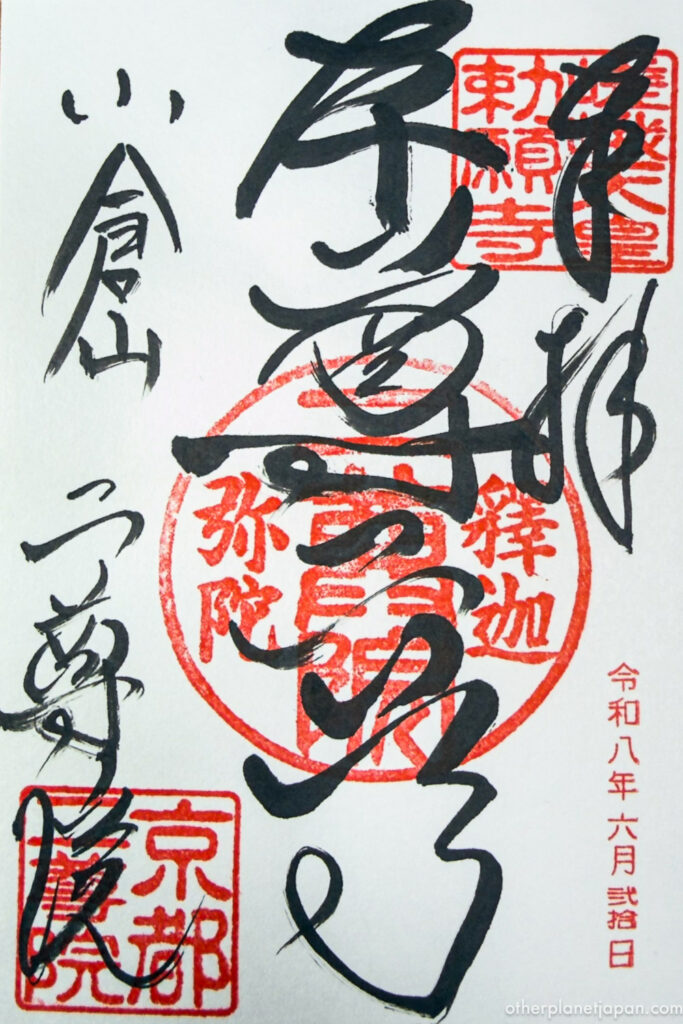 奉拝
嵯峨天皇
勅願寺
令和八年六月弐拾日
本尊
釋迦
二尊院
弥陀
小倉山
二尊院
京都
二尊院
otherplanetjapan.com